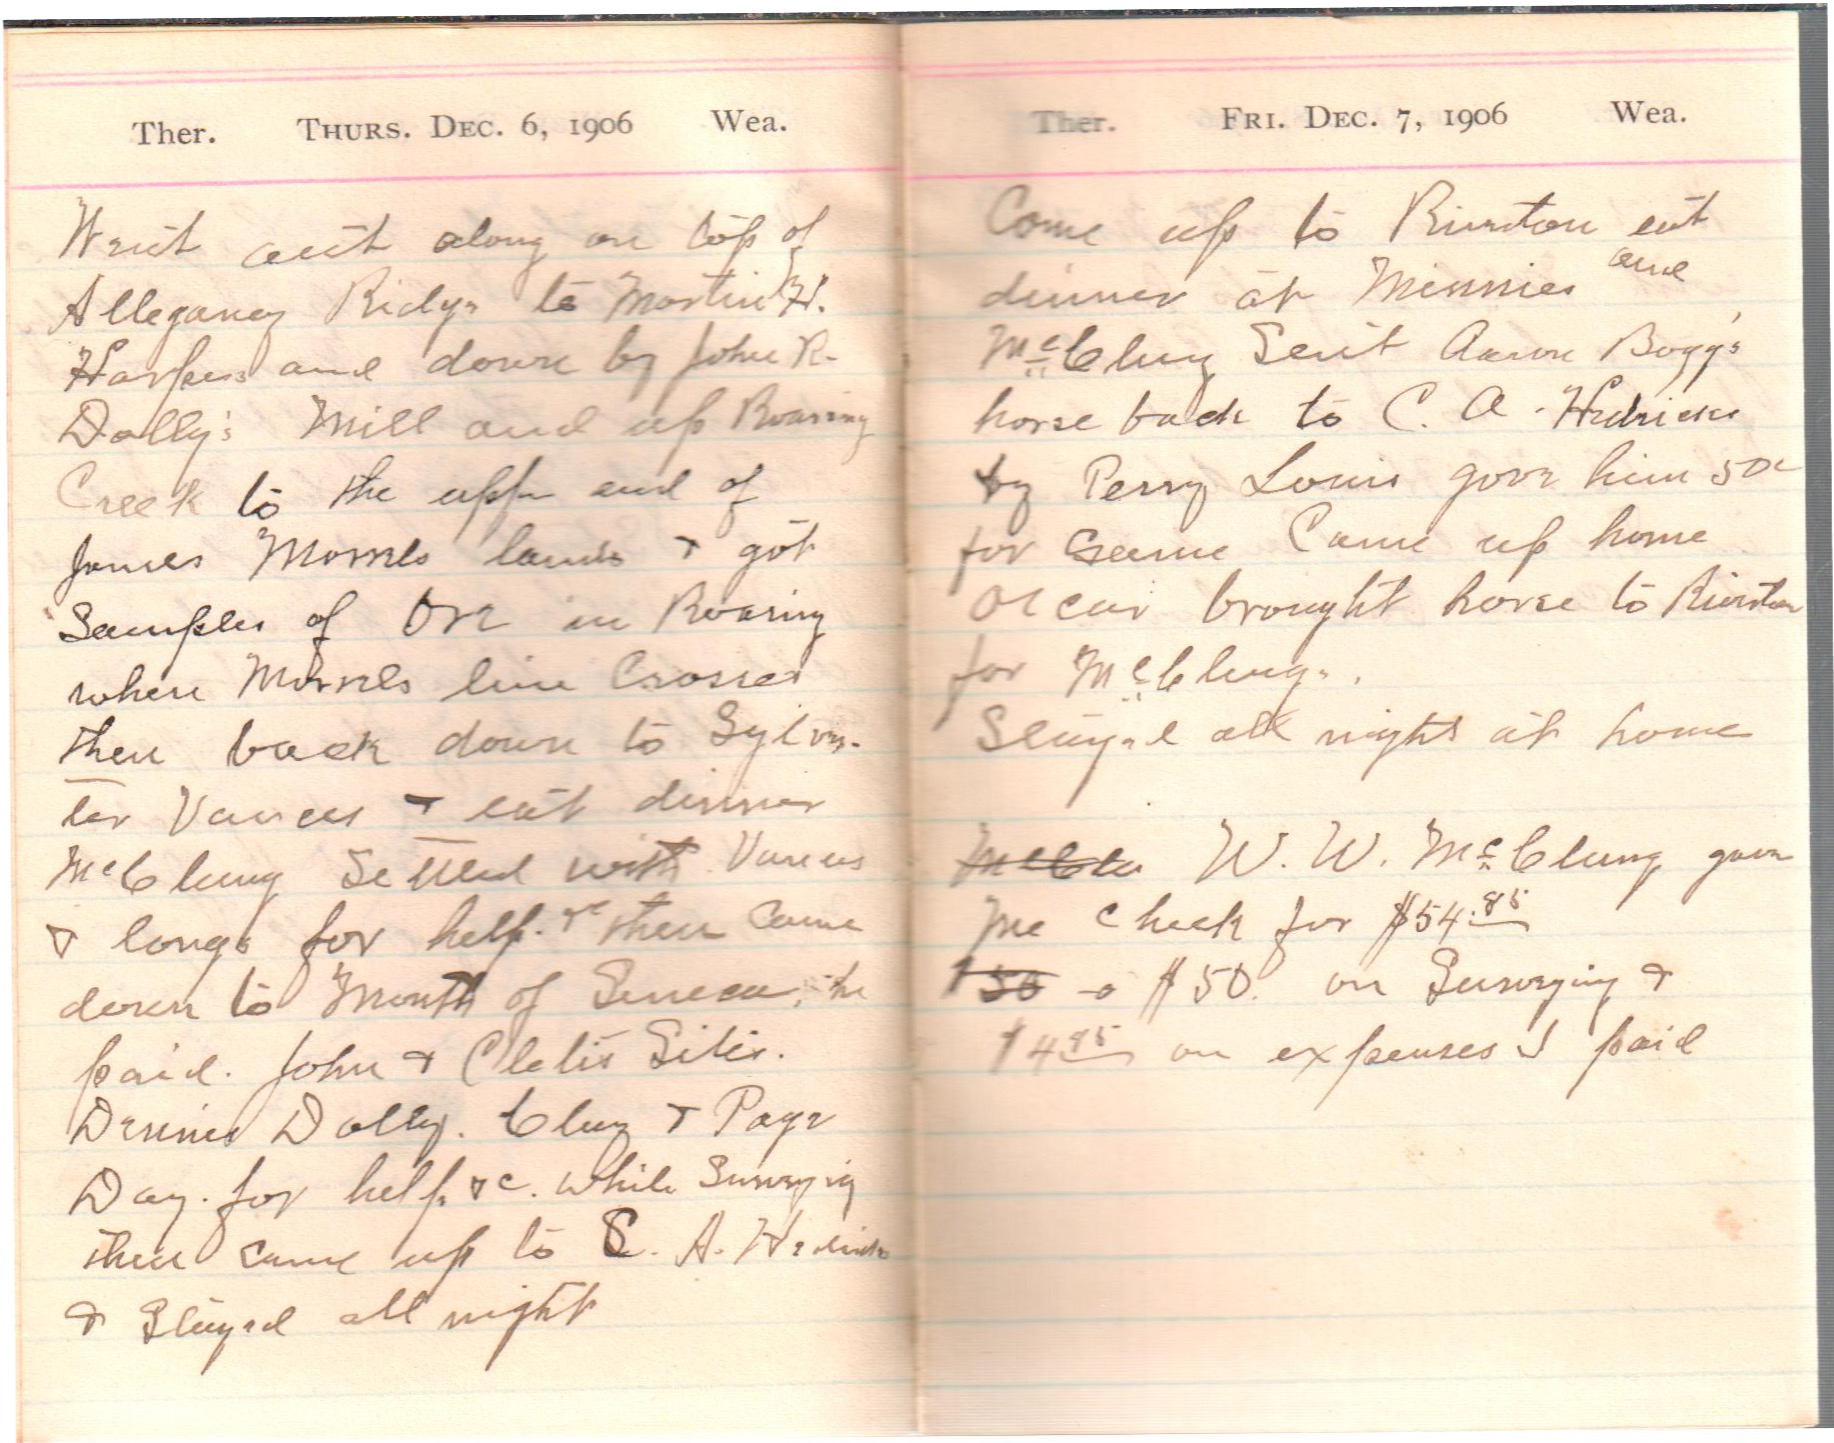 Ther. THURS. DEC. 6, 1906 Wea.
Went out along on top of
Allegany Ridge to Martin H.
Harpers and down by John R.
Dolly's Mill and up Roaring
Creek to the upper end of
James Morrels lands & got
Samples of Ore in Roaring
where Morrels line Crosses
then back down to Sylves-
ter Vances & eat dinner
McClung Settled with Vances
& longs for help. &c then Came
down to Mouth of Seneca, he
paid. John & Cletis Sites.
Dennis Dolly. Clay & Page
Day. for help &c. while Surveying
then came up to C. A. Hedricks
& Stayed all night
Ther. FRI. DEC. 7, 1906 Wea.
Come up to Riverton eat
dinner at Minnies and
McClung Sent Aaron Boggs
horse back to C. A. Hedricks
by Perry Louis gave him 50c
for Same Came up home
Oscar brought horse to Riverton
for McClung.
Stayed all night at home
McClu W. W. McClung gave
me Check for $54.85
$50 $50. on Surveying &
$4.85 on expenses I paid